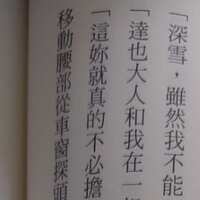 「深雪，雖然我不能
「達也大人和我在一
「這妳就真的不必擔
移動腰部從車窗探頭